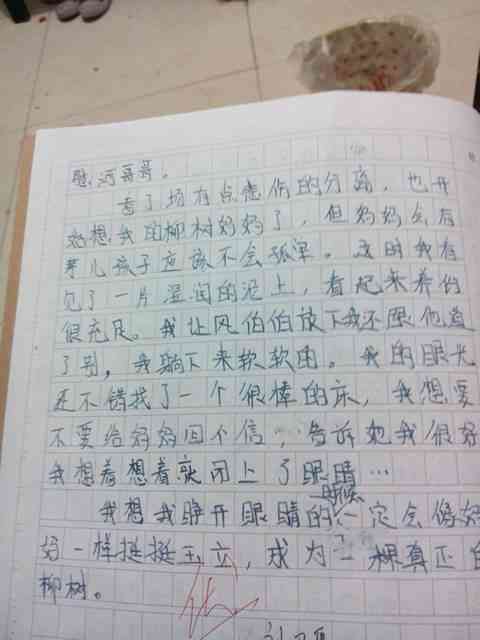 愿河哥哥。
看了场有点悲伤的分离，也开
始想我的柳树妈妈了，但妈妈会有
儿孩子应该不会孤单。这时我看
见了一片湿润的泥土，看起来养份
很充足。我让风伯伯放下我还跟他道
了别，我躺下来软软的。我的眼光
还不错找了一个很棒的床，我想要
不要给妈妈回个信，告诉她我很好
我想着想着就闭上了眼睛…
我想我睁开眼睛的时候一定会像妈
妈一样挺挺玉立，成为一棵真正的
柳树。